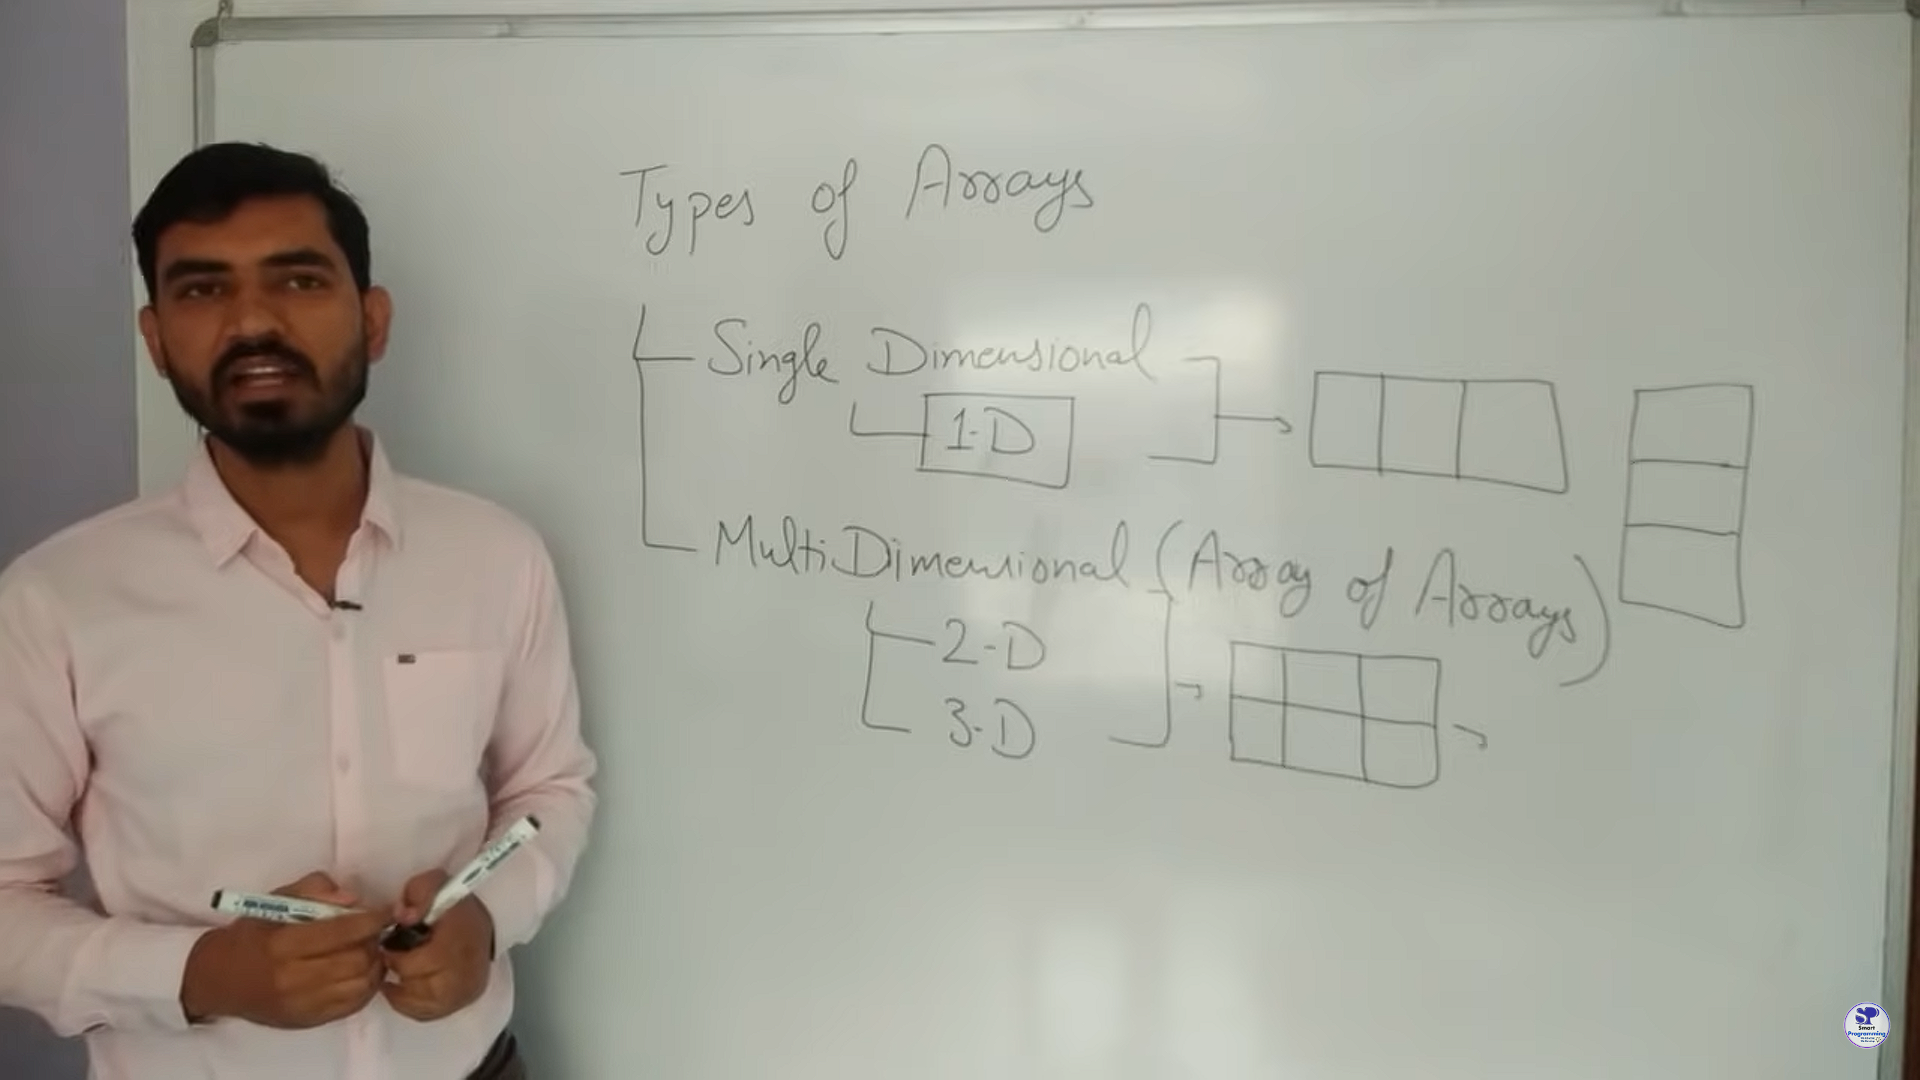 Types of Arrays
Single Dimensional
1-D
MultiDimensional (Array of Arrays)
2-D
3-D
SP
Smart
Programming